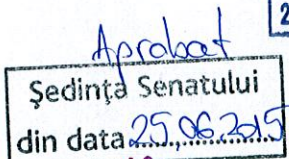 2
Aprobat
Ședința Senatului
din data 25.06.2015